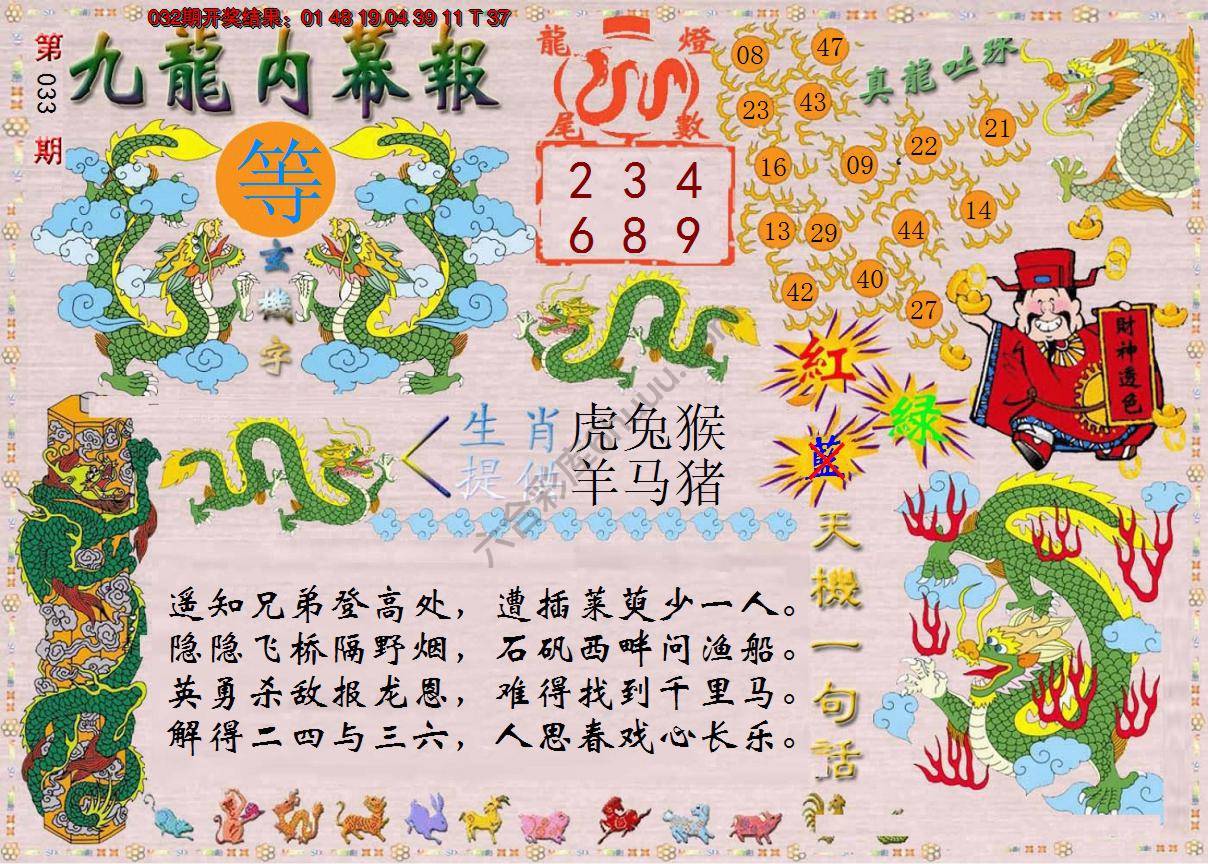 032期开奖结果：01 48 19 04 39 11 T 37
第033期
九龍内幕報
等
玄機字
龍燈
尾數
2 3 4
6 8 9
真龍吐珠
08 47
23 43
16 09 22 21
13 29 44 14
42 40 27
財神透色
紅
綠
藍
生肖 虎兔猴
提供 羊马猪
天機一句話
遥知兄弟登高处，遭插菜萸少一人。
隐隐飞桥隔野烟，石矶西畔问渔船。
英勇杀敌报龙恩，难得找到千里马。
解得二四与三六，人思春戏心长乐。